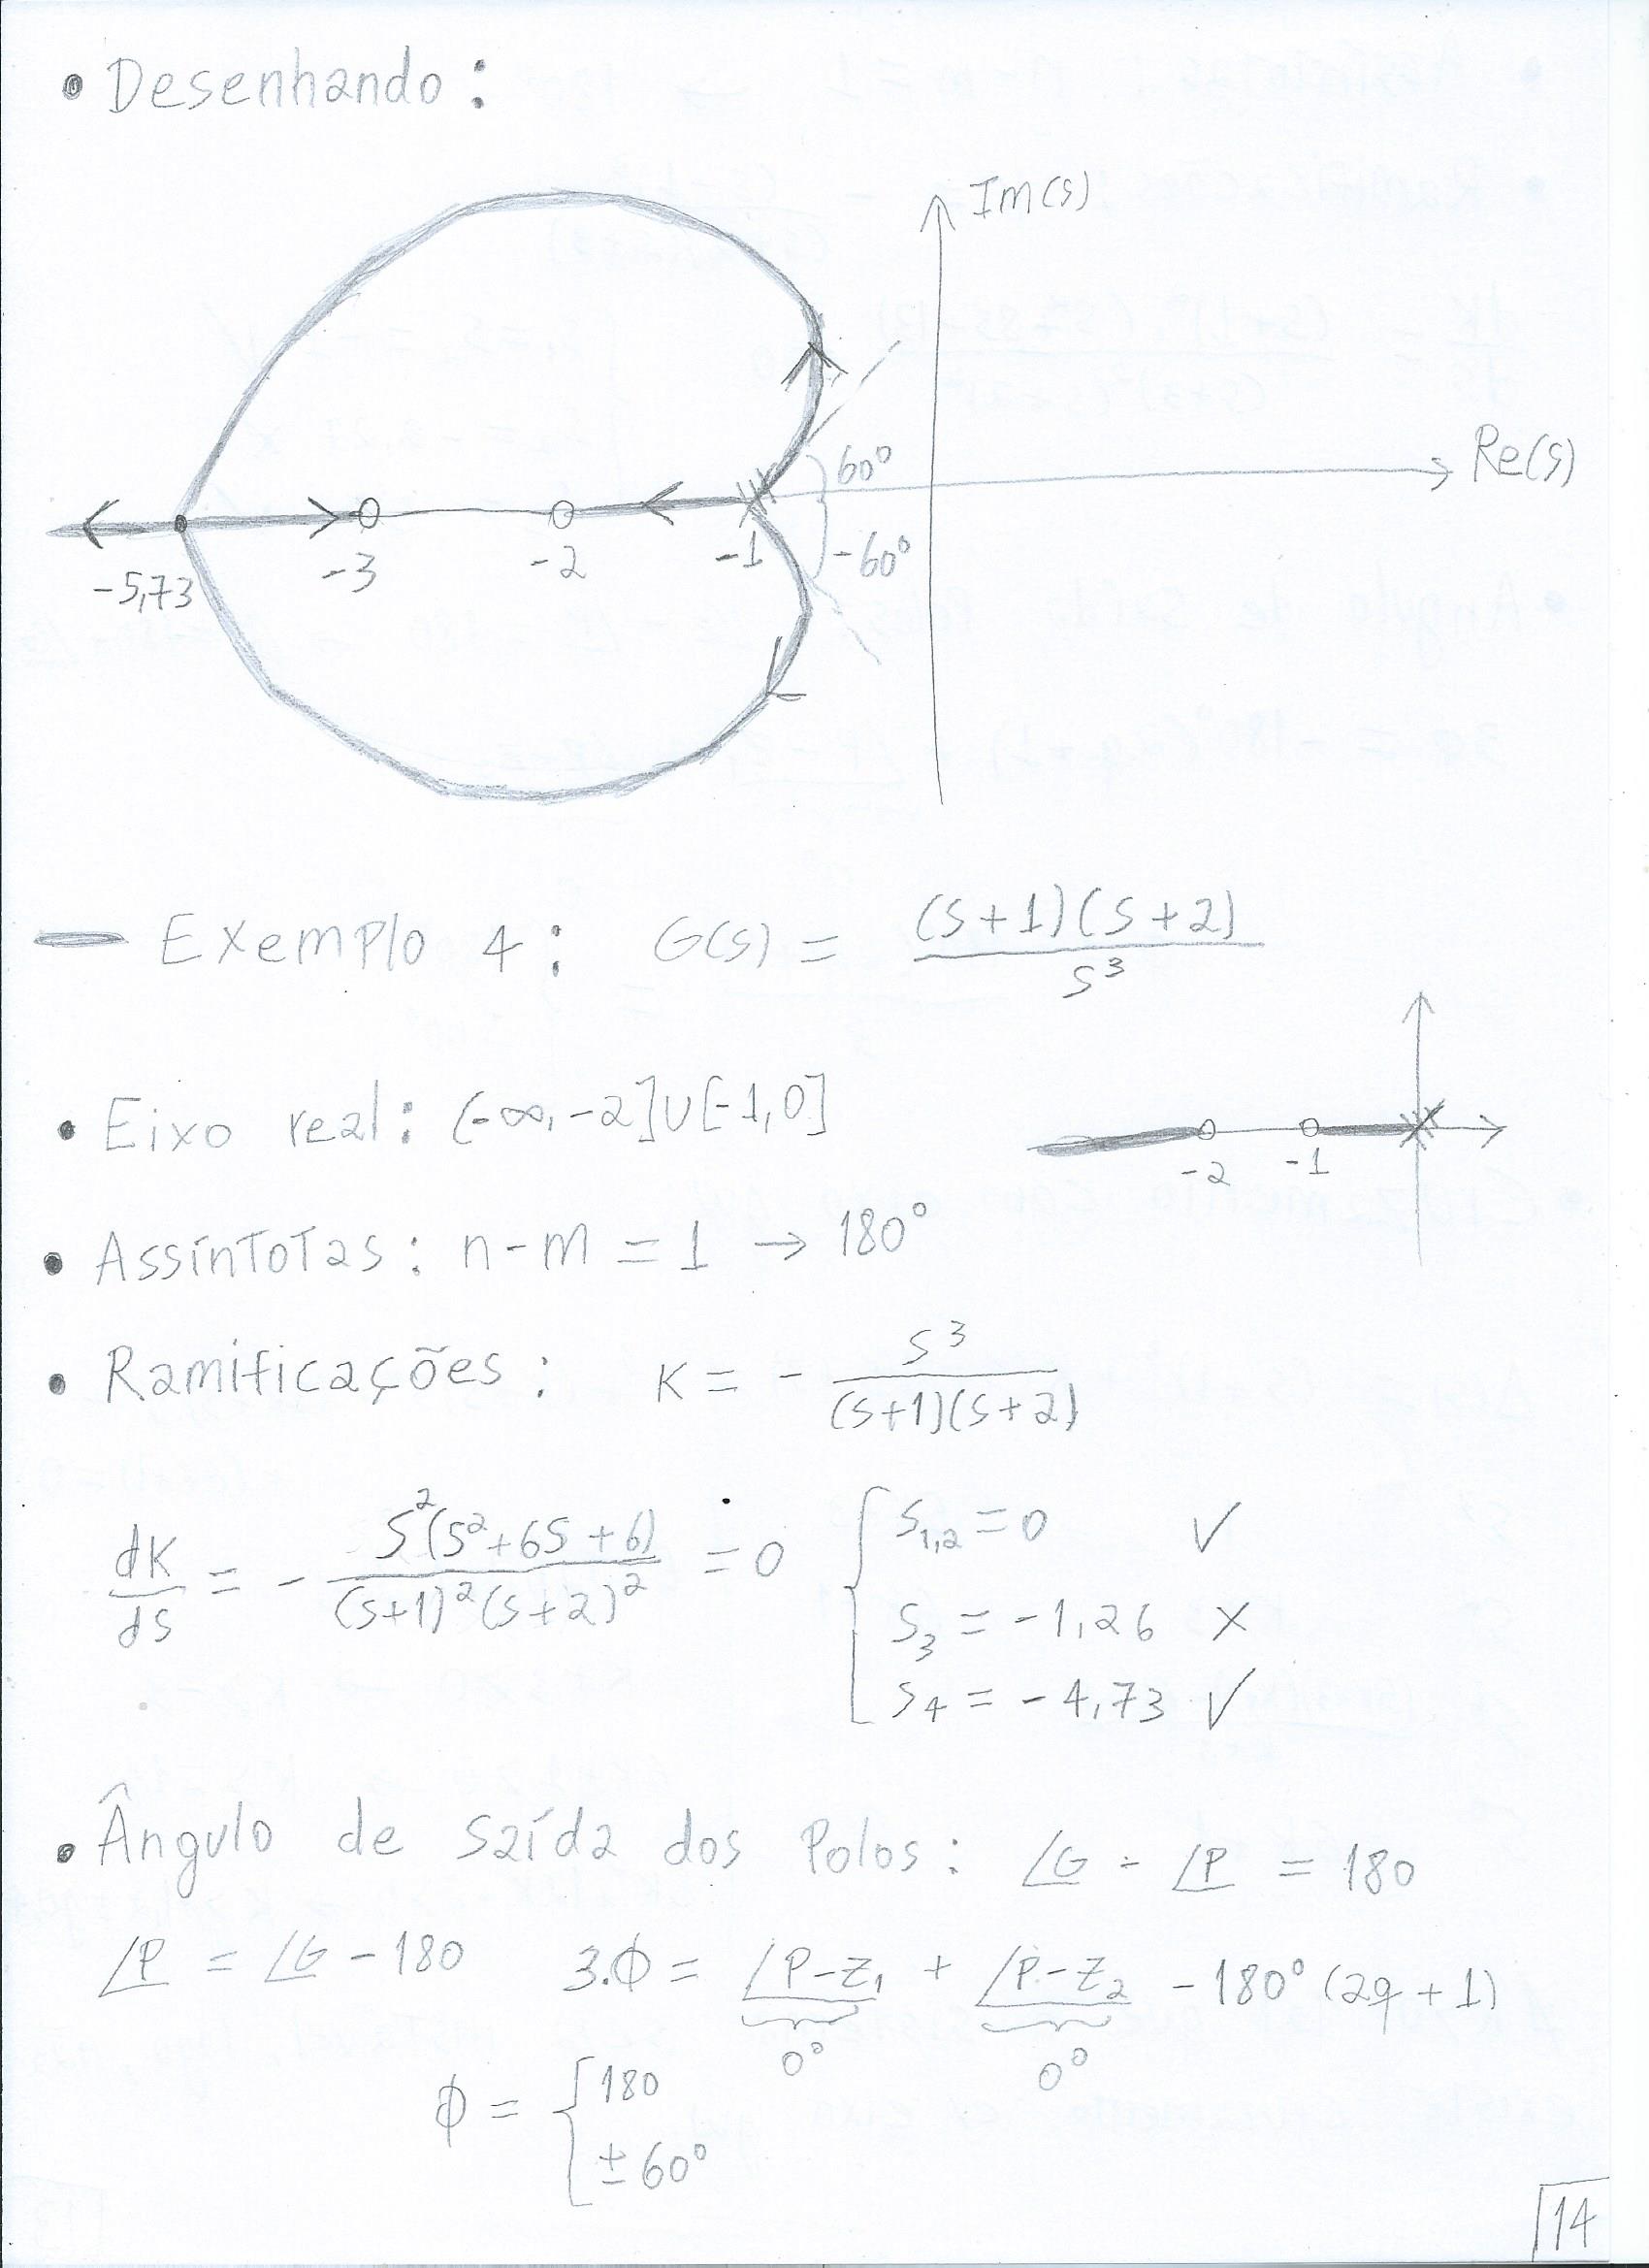 • Desenhando:
Im(s)
Re(s)
60°
-60°
-5,73 -3 -2 -1
— Exemplo 4: G(s) = (s+1)(s+2) / s³
• Eixo real: (-∞,-2]∪[-1,0]
-2 -1
• Assíntotas: n-m = 1 → 180°
• Ramificações: K = - s³ / (s+1)(s+2)
dK/ds = - s²(s²+6s+6) / (s+1)²(s+2)² = 0 { s₁,₂ = 0 ✓
s₃ = -1,26 ×
s₄ = -4,73 ✓
• Ângulo de saída dos polos: ∠G - ∠P = 180
∠P = ∠G - 180 3.ϕ = ∠P-Z₁ + ∠P-Z₂ - 180° (2q+1)
0° 0°
ϕ = { 180
± 60°
14